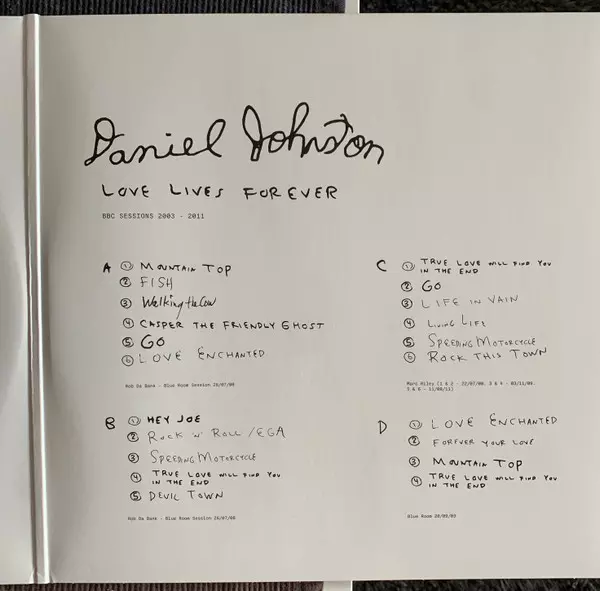 Daniel Johnston
LOVE LIVES FOREVER
BBC SESSIONS 2003 - 2011
A ① MOUNTAIN TOP
② FISH
③ Walking the Cow
④ CASPER THE FRIENDLY GHOST
⑤ GO
⑥ LOVE ENCHANTED
Rob Da Bank - Blue Room Session
B ① HEY JOE
② ROCK 'N' ROLL / EGA
③ SPEEDING MOTORCYCLE
④ TRUE LOVE WILL FIND YOU
IN THE END
⑤ DEVIL TOWN
Rob Da Bank - Blue Room Session
C ① TRUE LOVE WILL FIND YOU
IN THE END
② GO
③ LIFE IN VAIN
④ LIVING LIFE
⑤ SPEEDING MOTORCYCLE
⑥ ROCK THIS TOWN
Marc Riley (1 & 2 - 22/07/08. 3 & 4 - 03/11/09.
5 & 6 - 11/08/11)
D ① LOVE ENCHANTED
② FOREVER YOUR LOVE
③ MOUNTAIN TOP
④ TRUE LOVE WILL FIND YOU
IN THE END
Blue Room